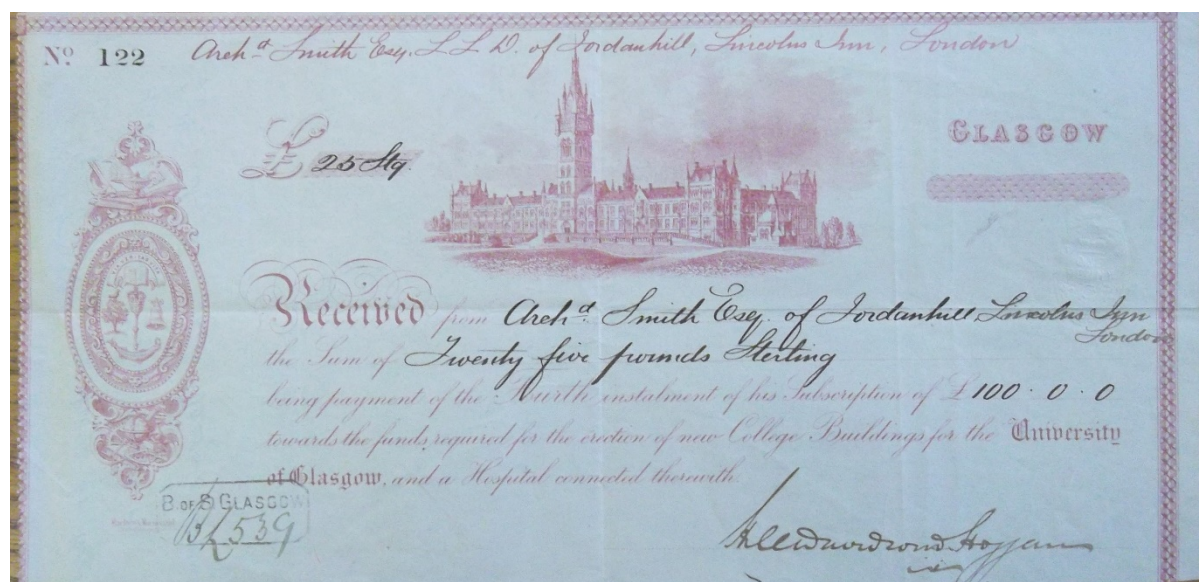 Nº 122 Archd Smith Esq. L L D. of Jordanhill, Lincolns Inn, London
GLASGOW
£ 25 Stg.
Received from Archd. Smith Esq. of Jordanhill Lincolns Inn
London
the Sum of Twenty five pounds Sterling
being payment of the Fourth instalment of his Subscription of £ 100 . 0 . 0
towards the funds required for the erection of new College Buildings for the University
of Glasgow, and a Hospital connected therewith.
B. OF S. GLASGOW
539